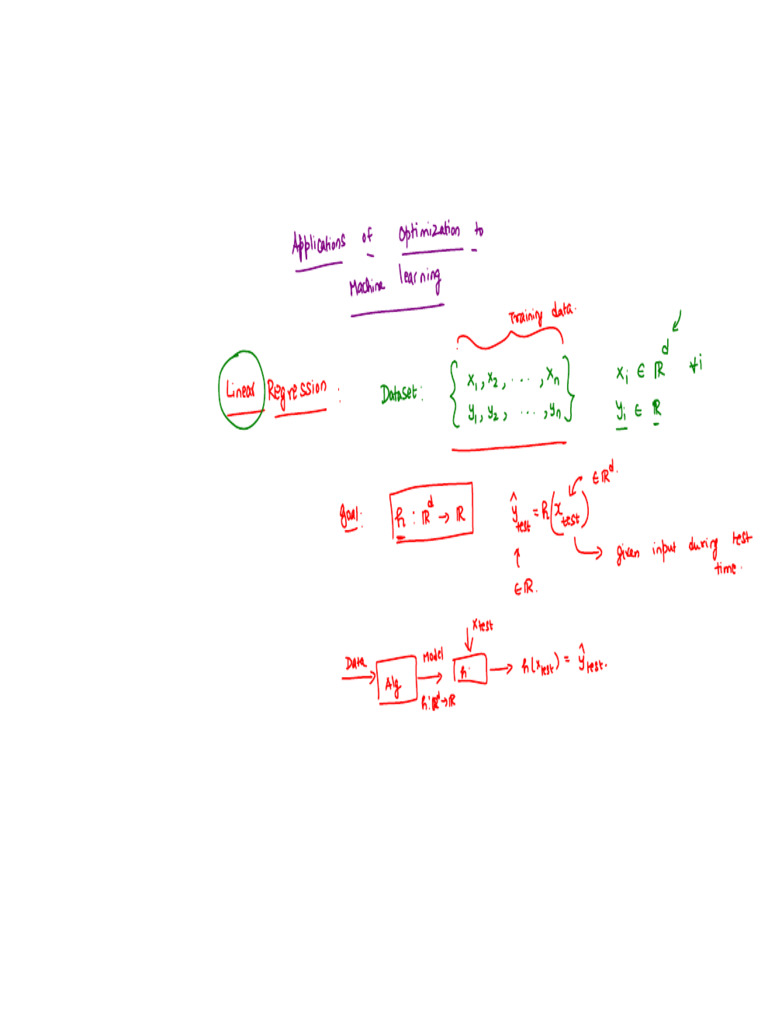 Applications of Optimization to
Machine learning
Training data.
Linear Regression : Dataset: { x₁, x₂, ..., xₙ xᵢ ∈ ℝᵈ ∀i
y₁, y₂, ..., yₙ } yᵢ ∈ ℝ
∈ ℝᵈ.
Goal: h : ℝᵈ → ℝ ŷ_test = h(x_test)
given input during test
time.
↑
∈ ℝ.
x_test
Data Alg Model h: → h(x_test) = ŷ_test.
h: ℝᵈ → ℝ